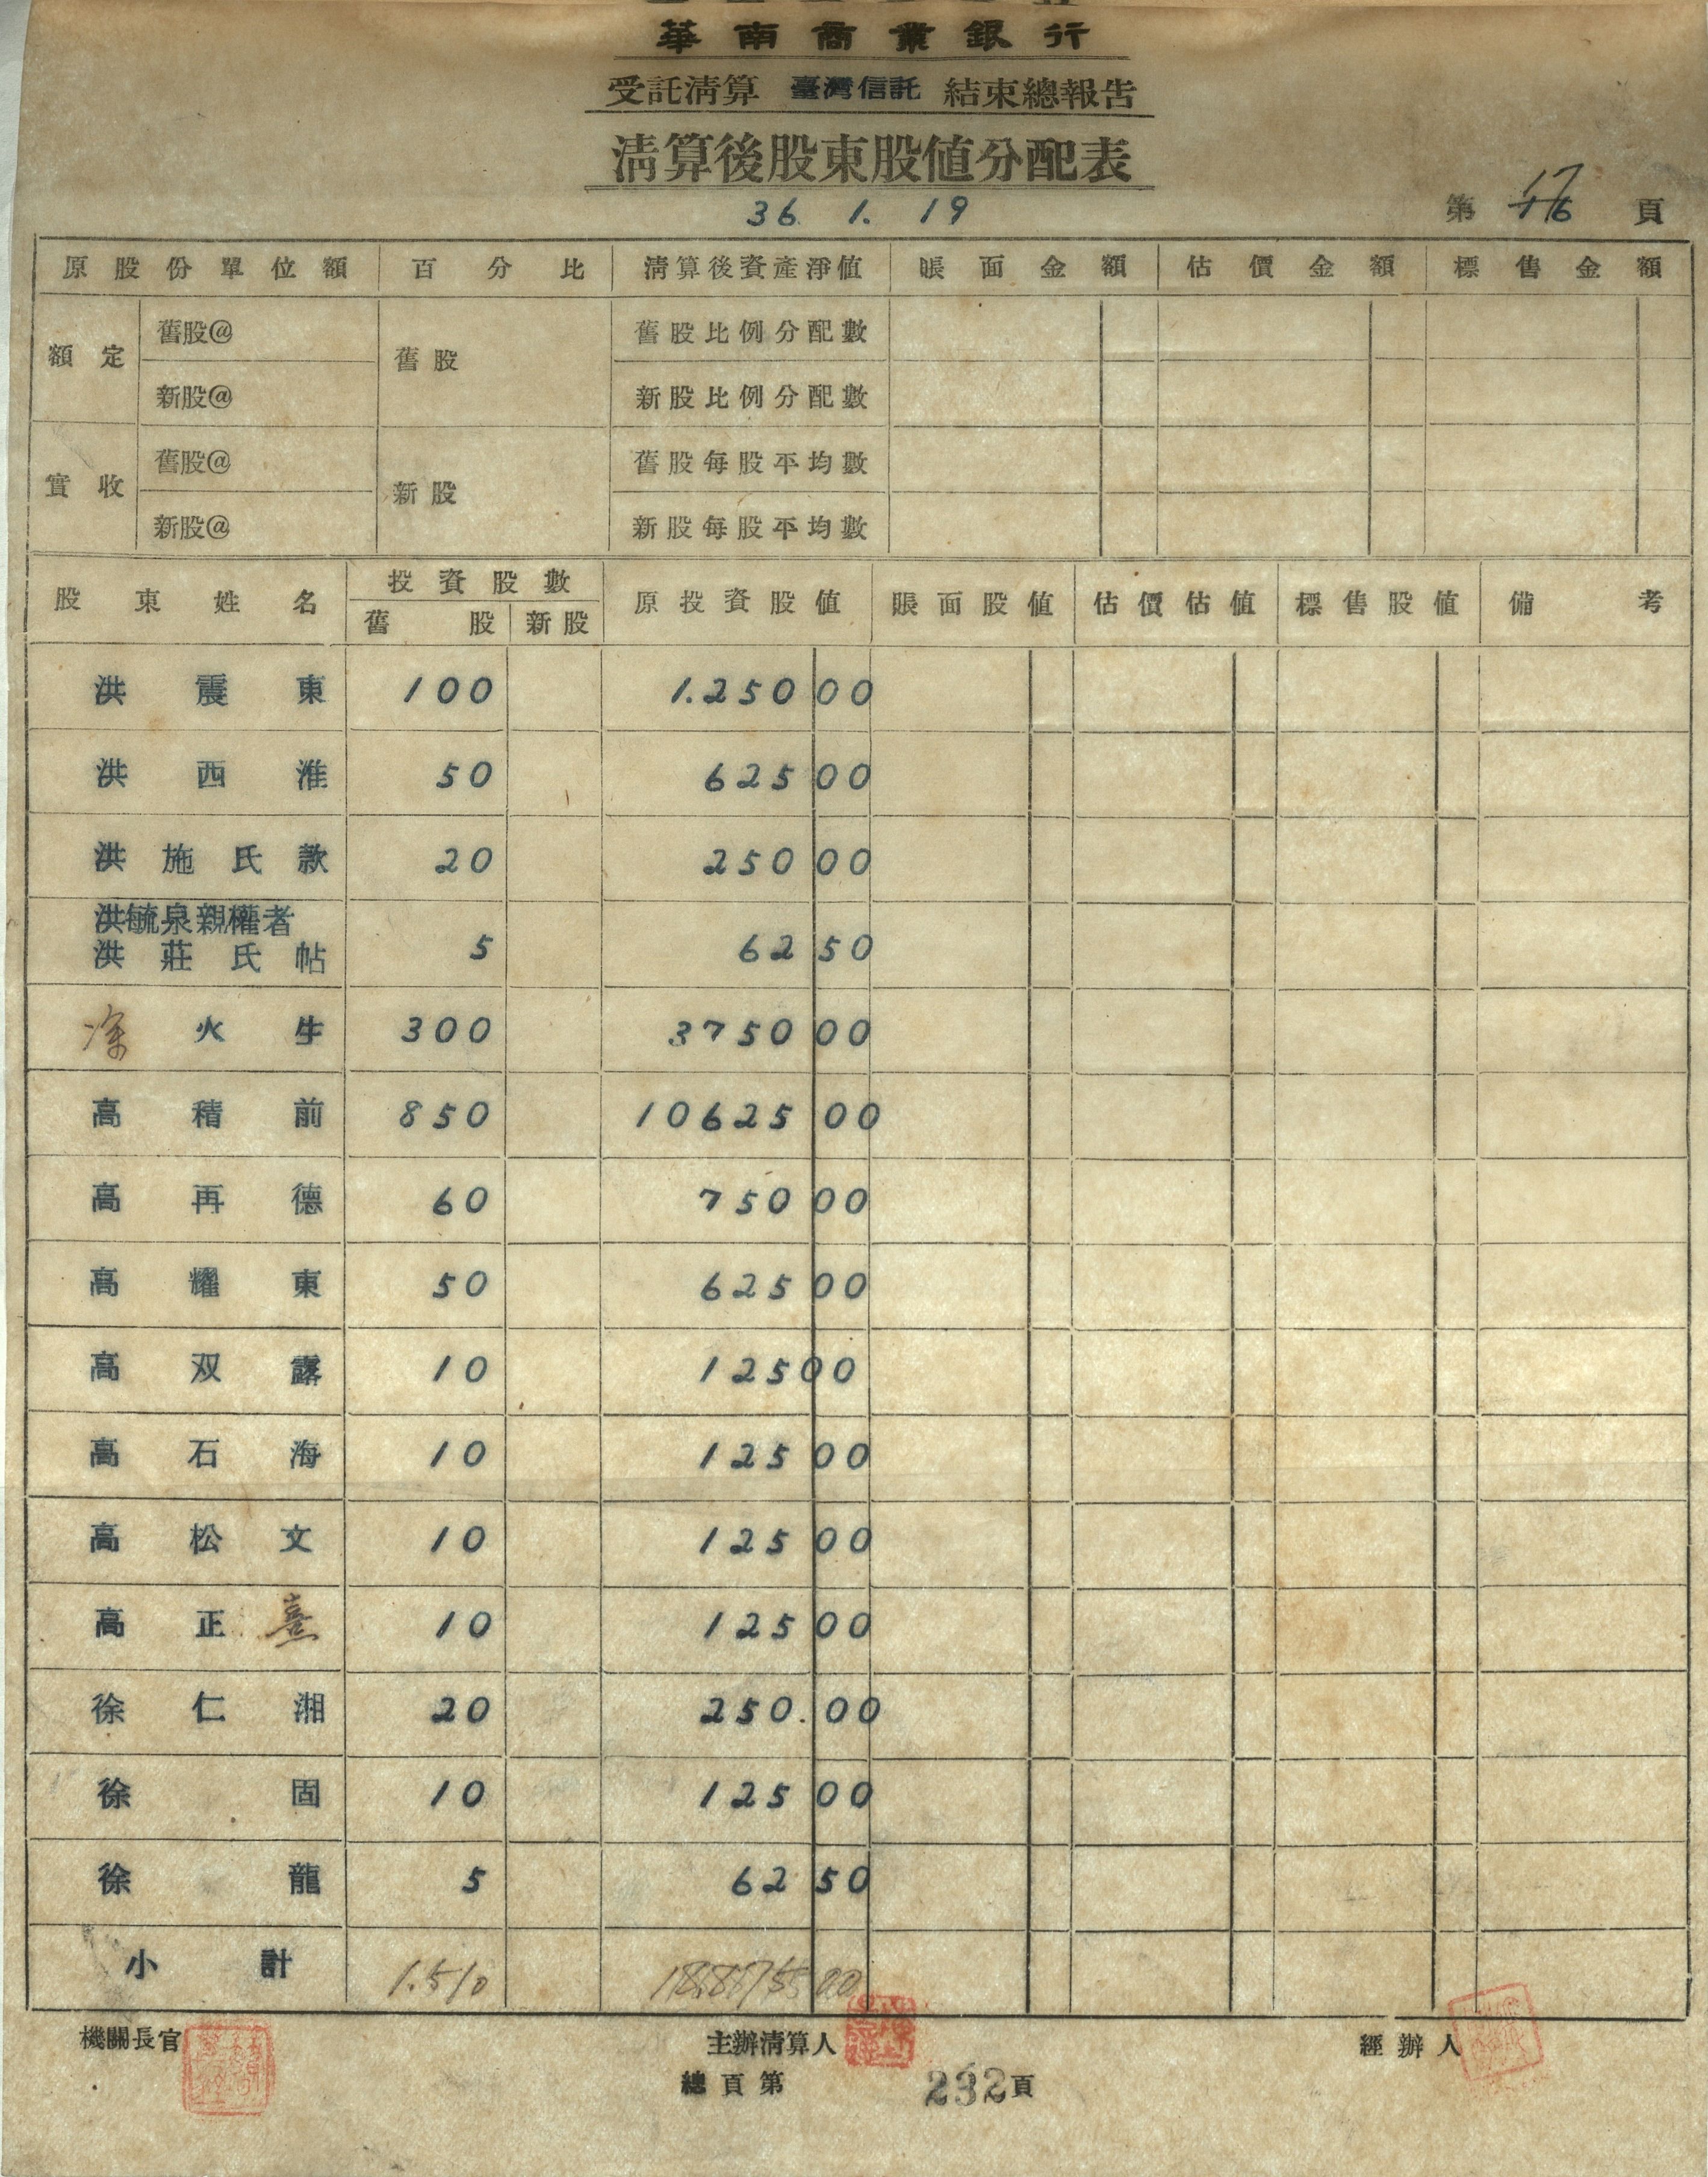 華南商業銀行
受託清算 臺灣信託 結束總報告
清算後股東股值分配表
36. 1. 19
第 17 頁
原股份單位額 百分比 清算後資產淨值 賬面金額 估價金額 標售金額
額定 舊股@ 舊股 舊股比例分配數
新股@ 新股比例分配數
實收 舊股@ 新股 舊股每股平均數
新股@ 新股每股平均數
股東姓名 投資股數 原投資股值 賬面股值 估價估值 標售股值 備考
舊股 新股
洪震東 100 1.250 00
洪西淮 50 625 00
洪施氏款 20 250 00
洪毓泉親權者
洪莊氏帖 5 62 50
火生 300 3750 00
高積前 850 10625 00
高再德 60 750 00
高耀東 50 625 00
高双露 10 125 00
高石海 10 125 00
高松文 10 125 00
高正熹 10 125 00
徐仁湘 20 250.00
徐固 10 125 00
徐龍 5 62 50
小計 1.510 18.875 00
機關長官 主辦清算人 經辦人
總頁第 232頁